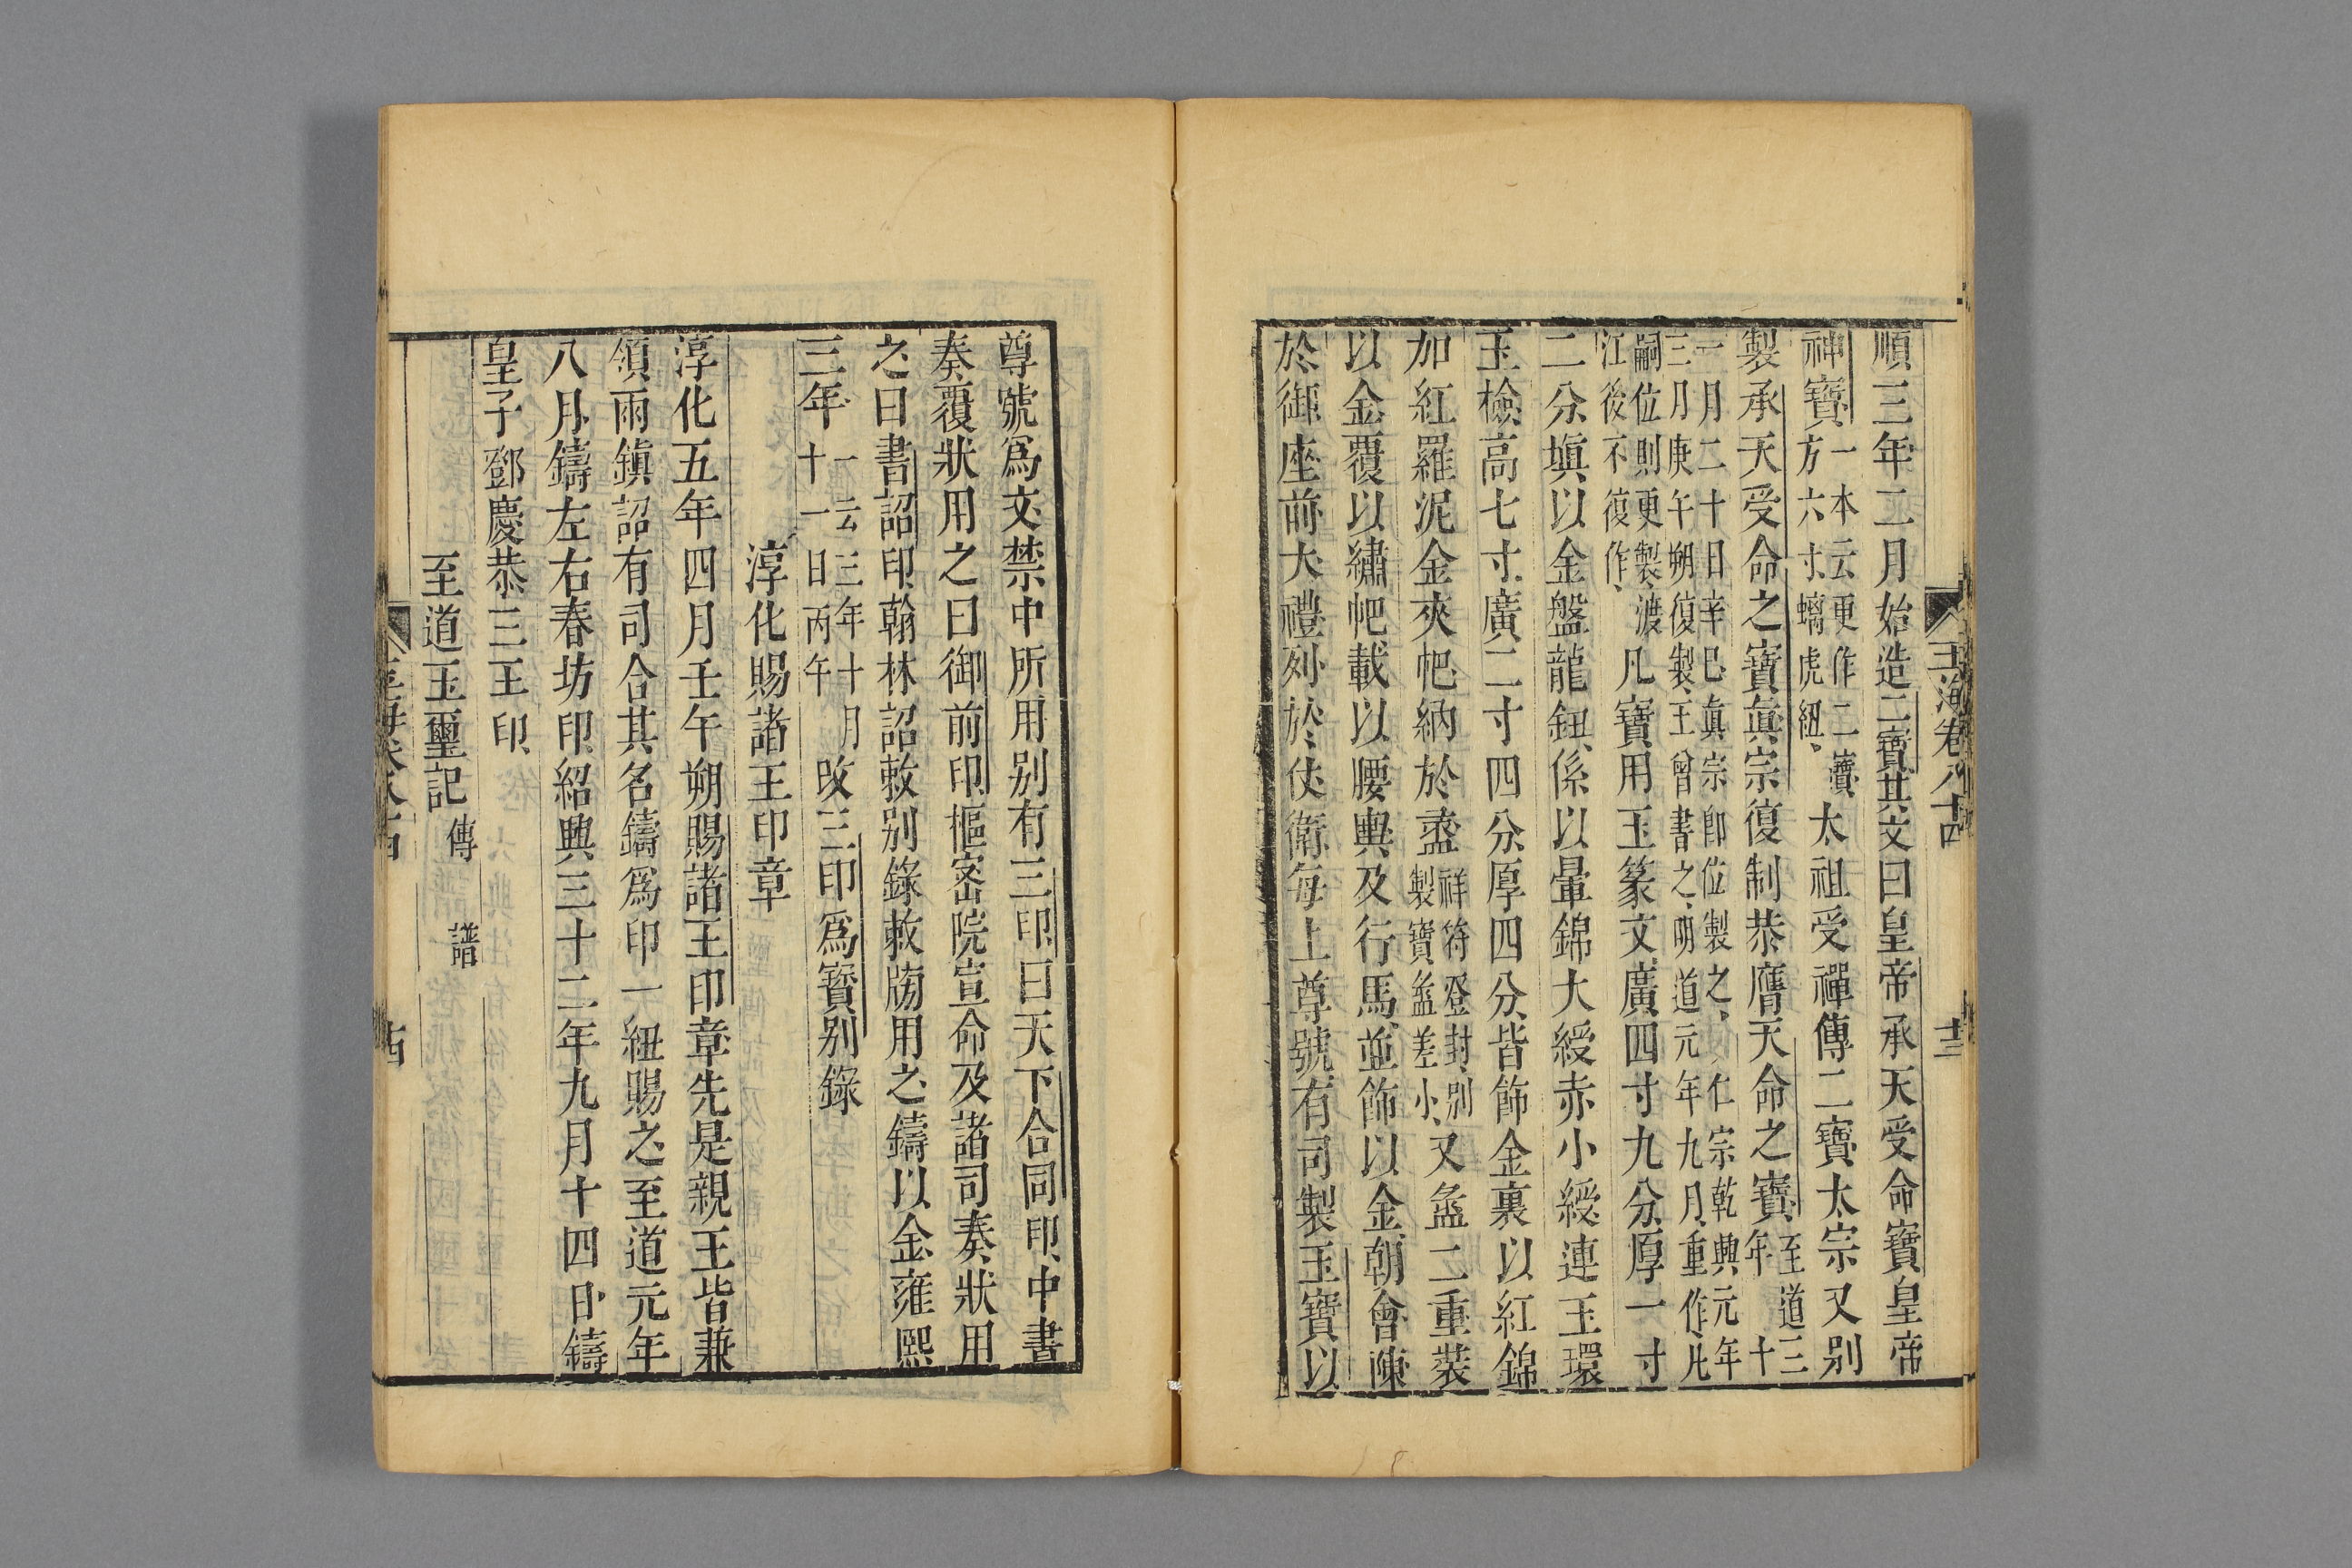 玉海卷八十四
十三
順三年二月始造二寶其文曰皇帝承天受命寶皇帝
神寶一本云更作二寶方六寸螭虎紐太祖受禪傳二寶太宗又别
製承天受命之寶眞宗復制恭膺天命之寶至道三年十
二月二十日辛巳眞宗卽位製之仁宗乾興元年
三月庚午朔復製王曾書之明道元年九月重作凡
嗣位則更製渡
江後不復作凡寶用玉篆文廣四寸九分厚一寸
二分塡以金盤龍鈕係以暈錦大綬赤小綬連玉環
玉檢高七寸廣二寸四分厚四分皆飾金裏以紅錦
加紅羅泥金夾帊納於盝祥符登封别製寶盝差小又盝二重裝
以金覆以繡帊載以腰輿及行馬並飾以金朝會陳
於御座前大禮列於仗衛每上尊號有司製玉寶以
尊號爲文禁中所用别有三印曰天下合同印中書
奏覆狀用之曰御前印樞密院宣命及諸司奏狀用
之曰書詔印翰林詔敕别錄敕牓用之鑄以金雍熙
三年一云三年十月十一日丙午改三印爲寶别錄
淳化賜諸王印章
淳化五年四月壬午朔賜諸王印章先是親王皆兼
領兩鎭詔有司合其名鑄爲印一紐賜之至道元年
八月鑄左右春坊印紹興三十二年九月十四日鑄
皇子鄧慶恭三王印
至道玉璽記 傳 譜
十四